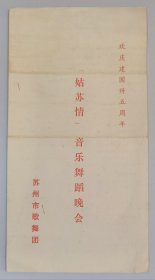 欢庆建国卅五周年
姑苏情 音乐舞蹈晚会
苏州市歌舞团